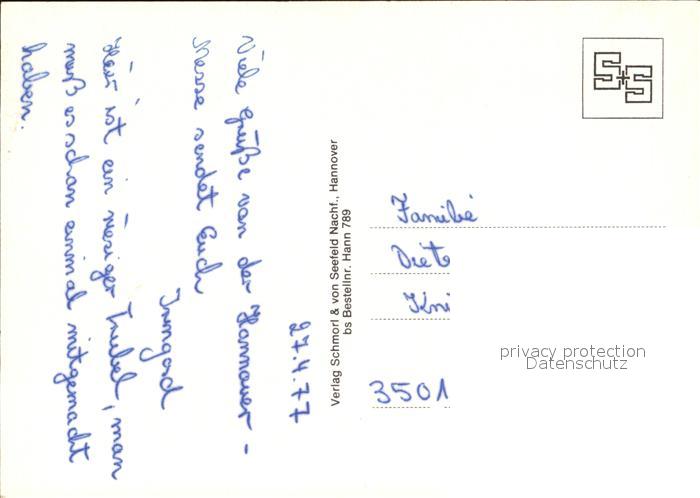 27.4.77
Viele Grüße von der Hannover-
Messe sendet Euch
Irmgard
Hier ist ein riesiger Trubel, man
muß es schon einmal mitgemacht
haben.
Verlag Schmorl & von Seefeld Nachf., Hannover
bs Bestellnr. Hann 789
S+S
Familie
3501
privacy protection
Datenschutz